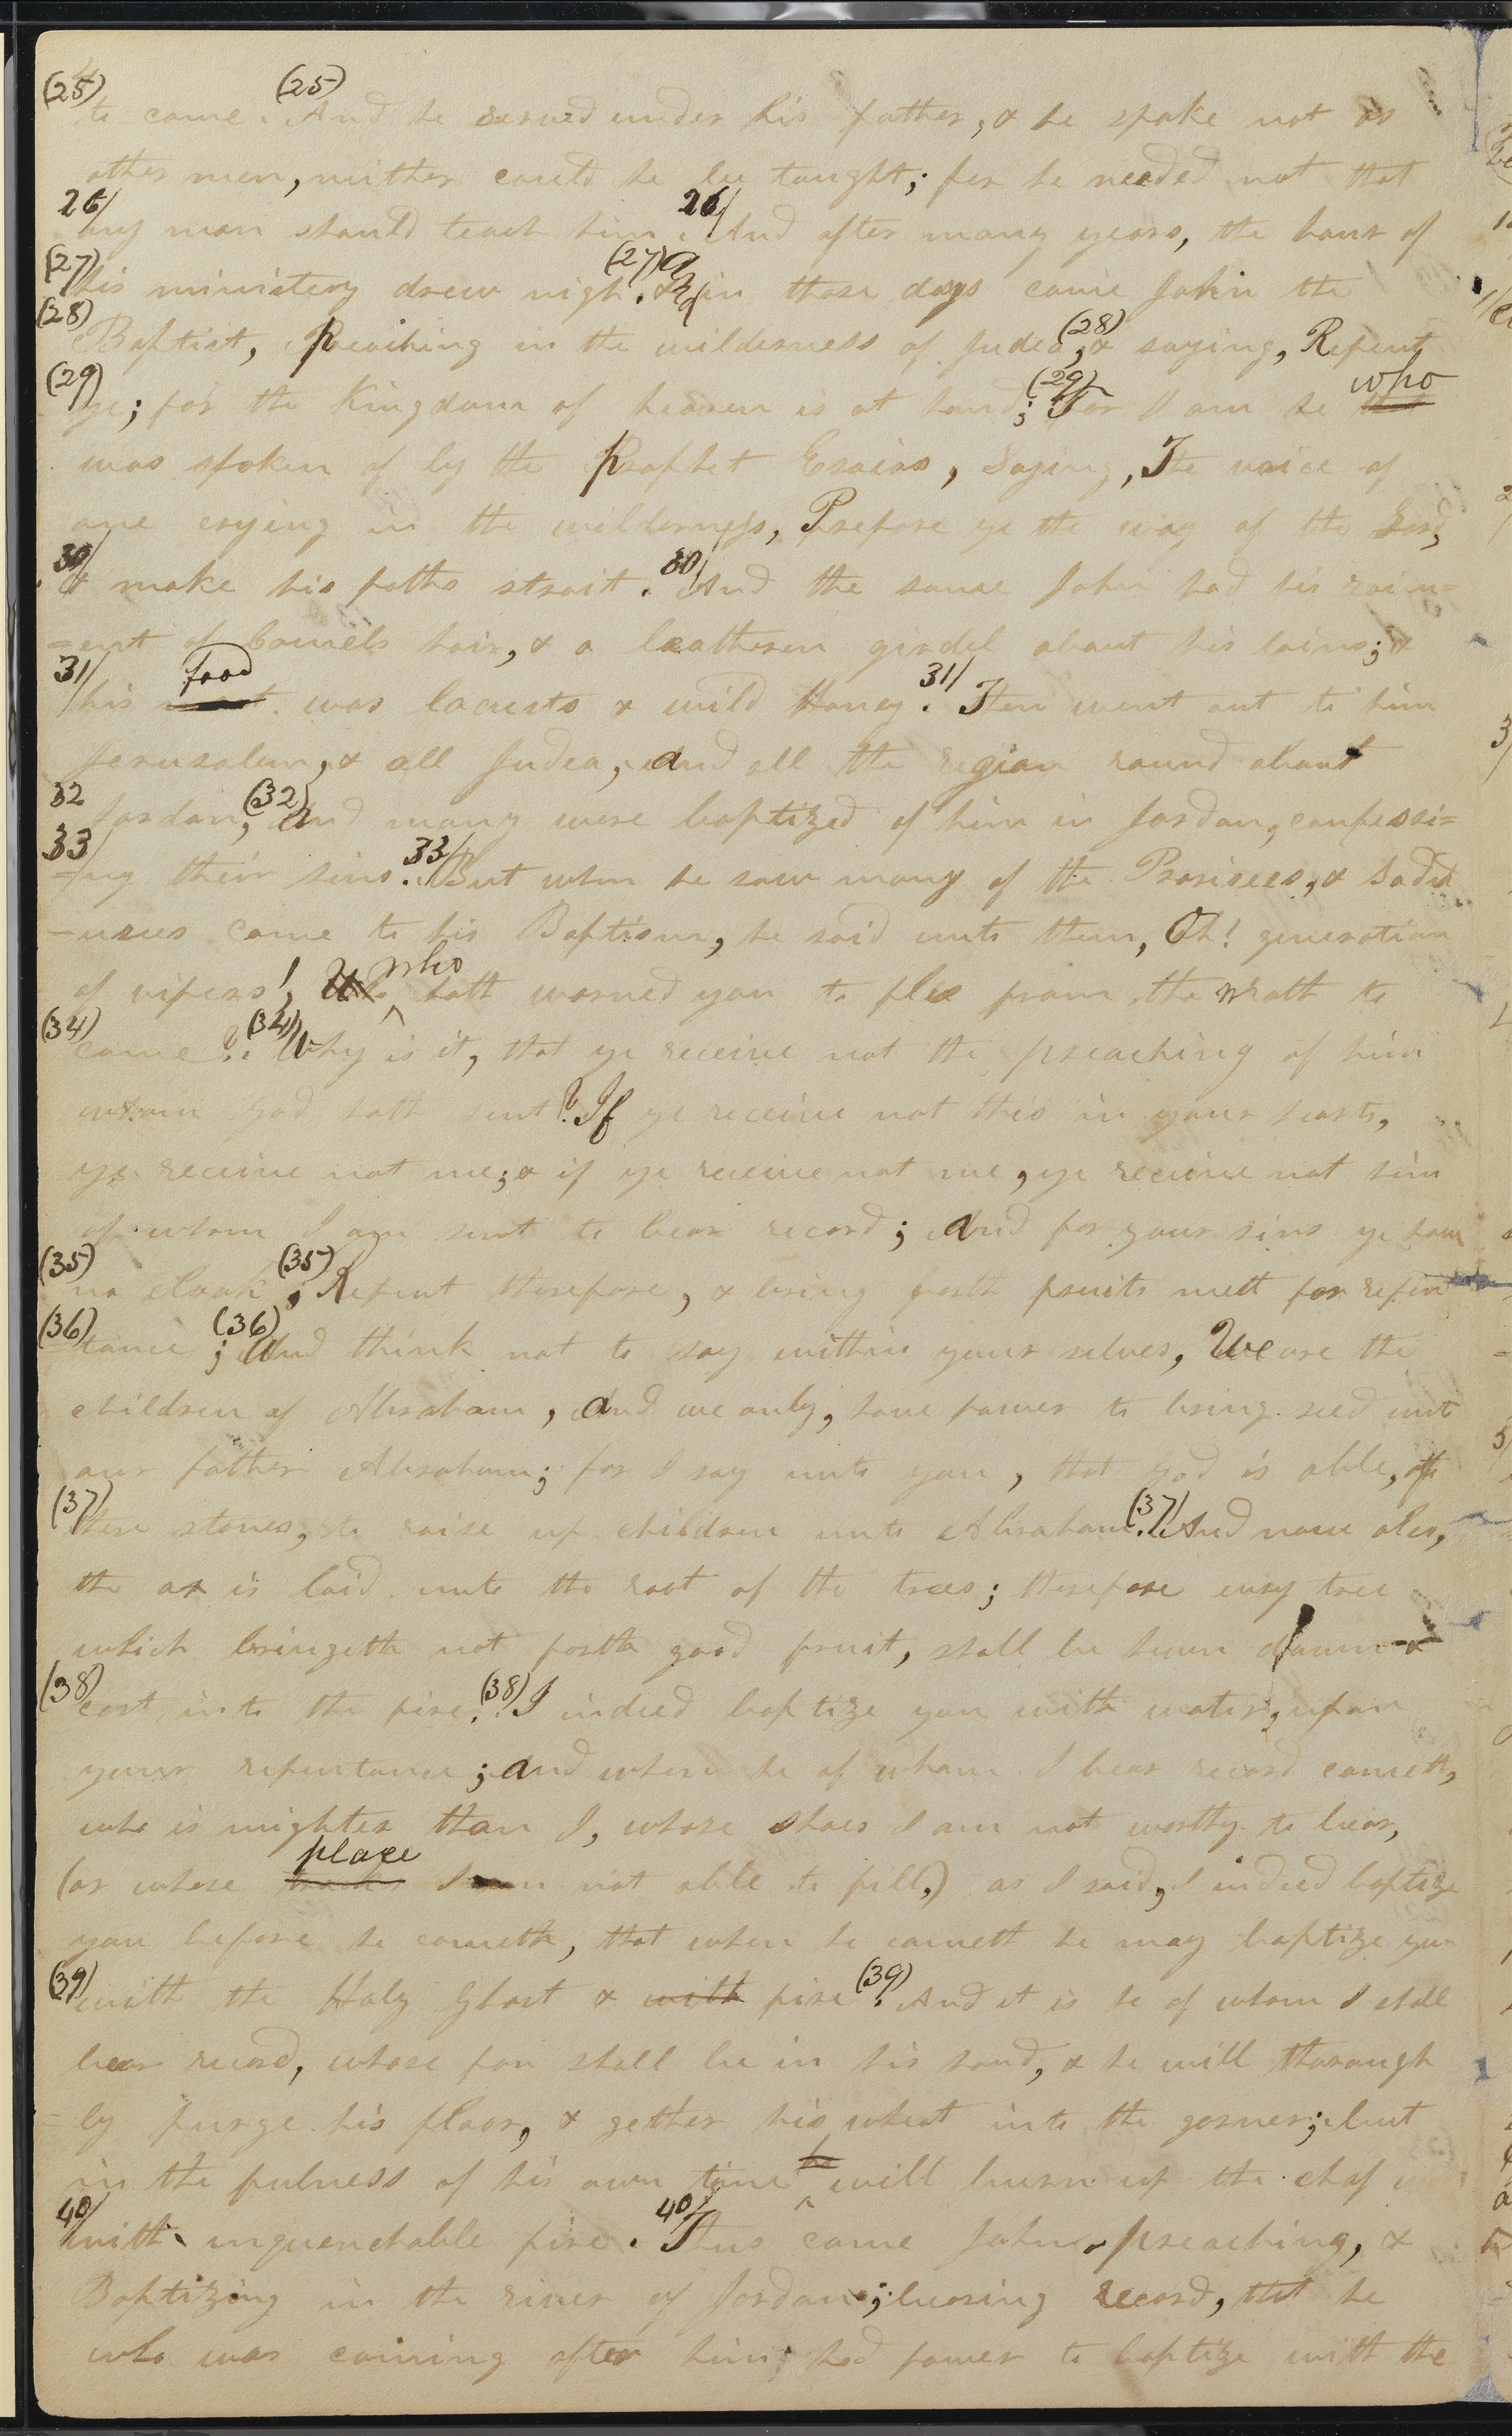 (25) to come. (25) And he served under his father, & he spake not as
other men, neither could he be taught; for he needed not that
26/ any man should teach him. 26/ And after many years, the hour of
(27) his ministery drew nigh. (27) And in those days came John the
(28) Baptist, Preaching in the wilderness of Judea, (28) & saying, Repent
(29) ye; for the Kingdom of heaven is at hand; (29) For I am he who
was spoken of by the Prophet Esaias, Saying, The voice of
one crying in the wilderness, Prepare ye the way of the Lord,
30/ & make his paths strait. 30/ And the same John had his raim=
=ent of Camels hair, & a leathern girdel about his loins; &
31/ his food was locusts & wild Honey. 31/ Then went out to him
Jerusalem, & all Judea, and all the region round about
32 Jordan, (32) And many were baptized of him in Jordan, confessi=
33 =ng their sins. 33/ But when he saw many of the Pharisees, & Sadd
=usees come to his Baptism, he said unto them, Oh! generation
of vipers! who hath warned you to flee from the wrath to
(34) come? (34) Why is it, that ye receive not the preaching of him
whom God hath sent? If ye receive not this in your harts,
ye receive not me; & if ye receive not me, ye receive not him
of whom I am sent to bear record; and for your sins ye have
(35) no cloak; (35) Repent therefore, & bring forth fruits meet for repen
(36) =tance; (36) And think not to say within your selves, We are the
children of Abraham, and we only, have power to bring seed unto
our father Abraham; for I say unto you, that God is able, of
(37) these stones, to raise up children unto Abraham. (37) And now also,
the ax is laid unto the root of the trees; therefore evry tree
which bringeth not forth good fruit, shall be hewn down &
(38) cast into the fire. (38) I indeed baptize you with water, upon
your repentance; and when he of whom I bear record cometh,
who is mightier than I, whose shoes I am not worthy to bear,
(or whose place I am not able to fill,) as I said, I indeed baptize
you before he cometh, that when he cometh he may baptize you
(39) with the Holy Ghost & with fire. (39) And it is he of whom I shall
bear record, whose fan shall be in his hand, & he will thorough
=ly purge his floor, & gether his wheat into the garner; but
in the fulness of his own time he will burn up the chaf
40/ with unquenchable fire. 40/ Thus came John, preaching, &
Baptizing in the river of Jordan; bearing record, that he
who was coming after him, had power to baptize with the